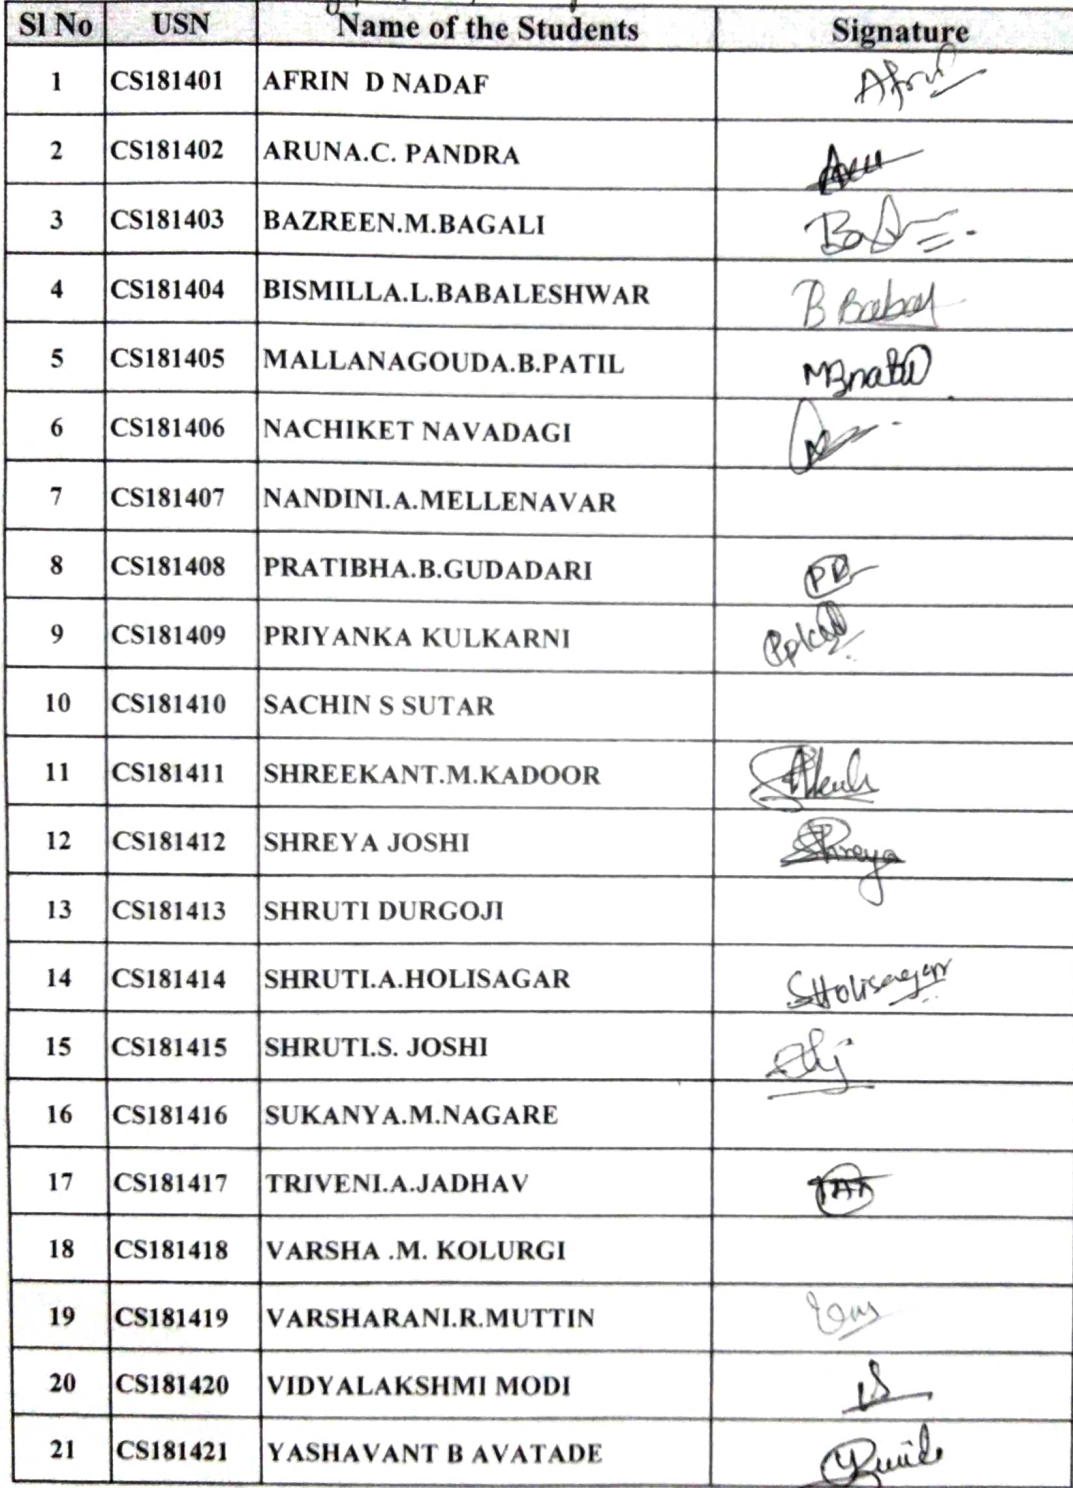 Sl No USN Name of the Students Signature
1 CS181401 AFRIN D NADAF Afrin
2 CS181402 ARUNA.C. PANDRA
3 CS181403 BAZREEN.M.BAGALI
4 CS181404 BISMILLA.L.BABALESHWAR B
5 CS181405 MALLANAGOUDA.B.PATIL
6 CS181406 NACHIKET NAVADAGI
7 CS181407 NANDINI.A.MELLENAVAR
8 CS181408 PRATIBHA.B.GUDADARI
9 CS181409 PRIYANKA KULKARNI
10 CS181410 SACHIN S SUTAR
11 CS181411 SHREEKANT.M.KADOOR
12 CS181412 SHREYA JOSHI Shreya
13 CS181413 SHRUTI DURGOJI
14 CS181414 SHRUTI.A.HOLISAGAR SHolisagar
15 CS181415 SHRUTI.S. JOSHI
16 CS181416 SUKANYA.M.NAGARE
17 CS181417 TRIVENI.A.JADHAV
18 CS181418 VARSHA .M. KOLURGI
19 CS181419 VARSHARANI.R.MUTTIN
20 CS181420 VIDYALAKSHMI MODI
21 CS181421 YASHAVANT B AVATADE